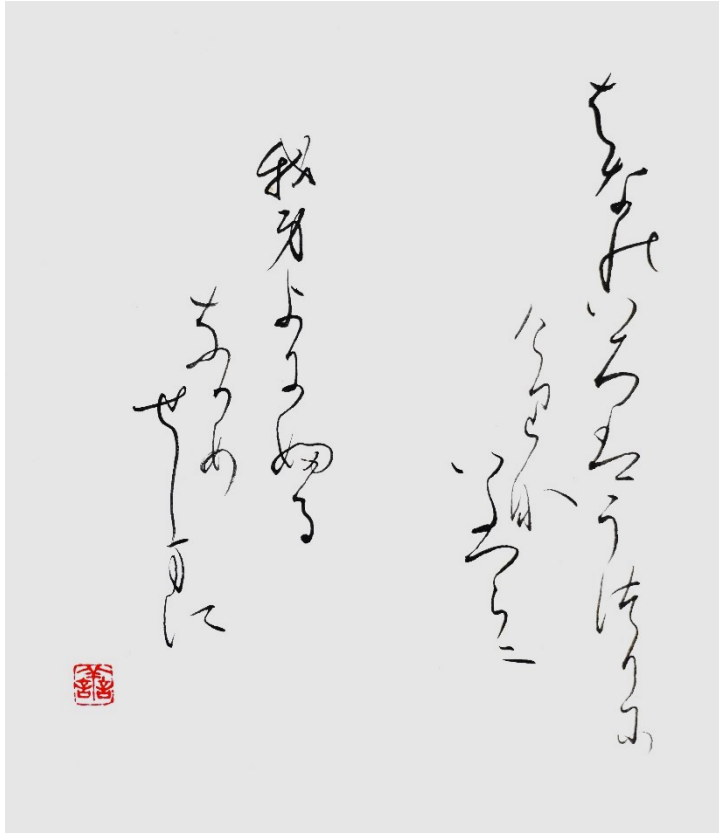 はなのいろはうつりに
介里那
いたつらに
我身よにふる
なかめ
せしまに